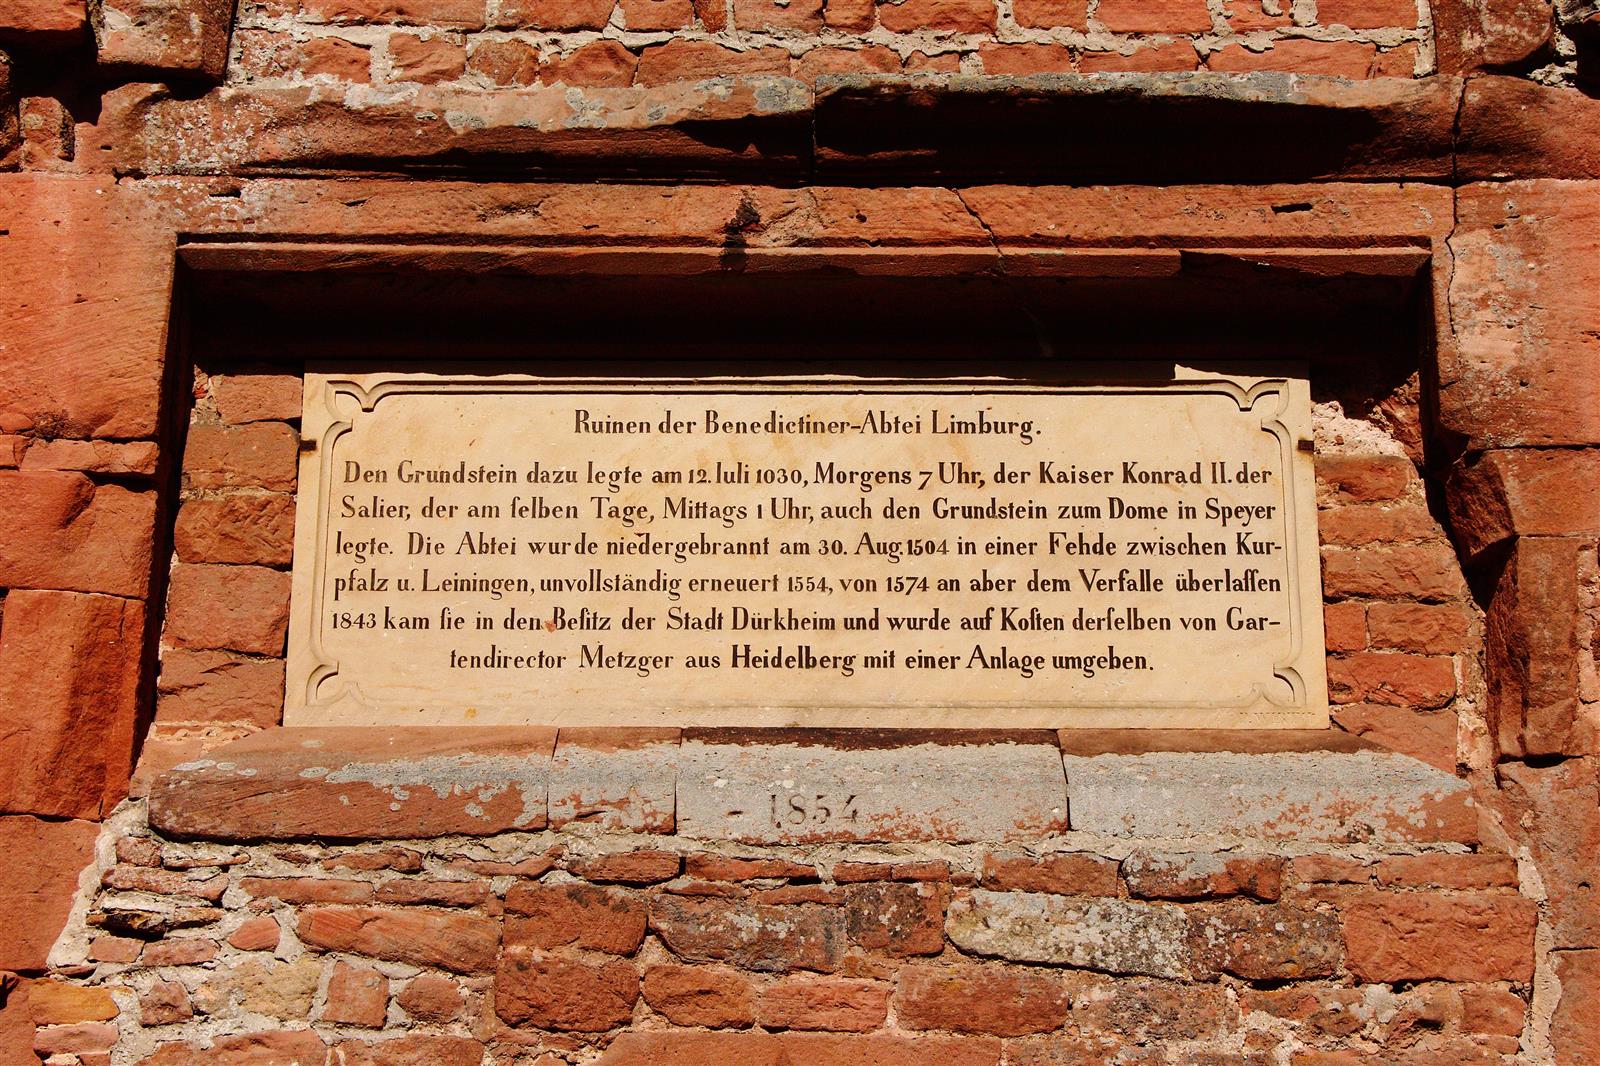 Ruinen der Benedictiner-Abtei Limburg.
Den Grundstein dazu legte am 12. Iuli 1030, Morgens 7 Uhr, der Kaiser Konrad II. der
Salier, der am ſelben Tage, Mittags 1 Uhr, auch den Grundstein zum Dome in Speyer
legte. Die Abtei wurde niedergebrannt am 30. Aug. 1504 in einer Fehde zwischen Kur-
pfalz u. Leiningen, unvollständig erneuert 1554, von 1574 an aber dem Verfalle überlaſſen
1843 kam ſie in den Beſitz der Stadt Dürkheim und wurde auf Koſten derſelben von Gar-
tendirector Metzger aus Heidelberg mit einer Anlage umgeben.
- 1854